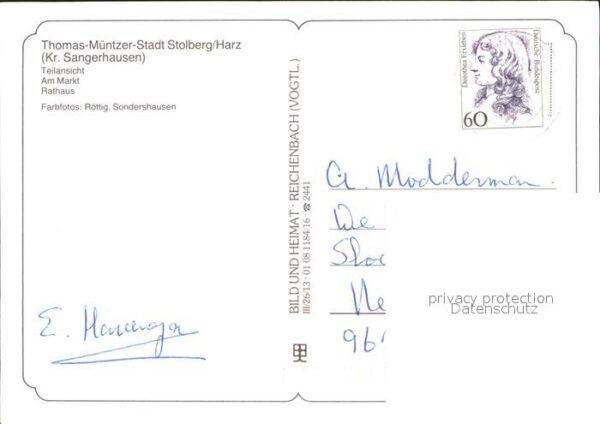 Thomas-Müntzer-Stadt Stolberg/Harz
(Kr. Sangerhausen)
Teilansicht
Am Markt
Rathaus
Farbfotos: Röttig, Sondershausen
BILD UND HEIMAT · REICHENBACH (VOGTL.)
III/26/13 · 01 08 1184/16 · ☎ 2441
Dorothea Erxleben
Deutsche Bundespost
60
Modderman.
privacy protection
Datenschutz
E.